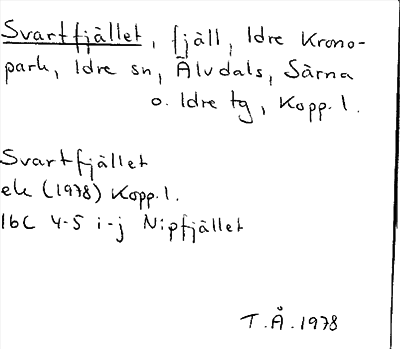 Svartfjället, fjäll, Idre Krono-
park, Idre sn, Älvdals, Särna
o. Idre tg, Kopp. l.
Svartfjället
ek (1978) Kopp. l.
16C 4-5 i-j Nipfjället
T.Å. 1978